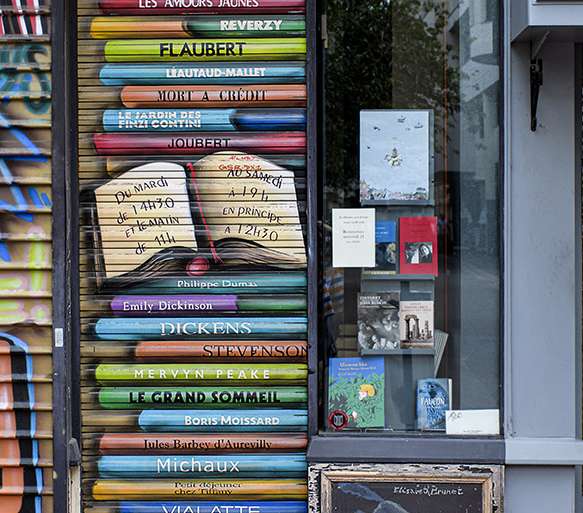 LES AMOURS JAUNES
REVERZY
FLAUBERT
LÉAUTAUD-MALLET
MORT A CRÉDIT
LE JARDIN DES
FINZI CONTINI
JOUBERT
DU MARDI
DE 14H30
ET LE MATIN
DE 11H
AU SAMEDI
À 19H
EN PRINCIPE
À 12H30
PHILIPPE DUMAS
EMILY DICKINSON
DICKENS
STEVENSON
MERVYN PEAKE
LE GRAND SOMMEIL
BORIS MOISSARD
JULES BARBEY D'AUREVILLY
MICHAUX
PETIT DÉJEUNER
CHEZ TIFFANY
VIALATTE
FAUCON
Elisabeth Brunet